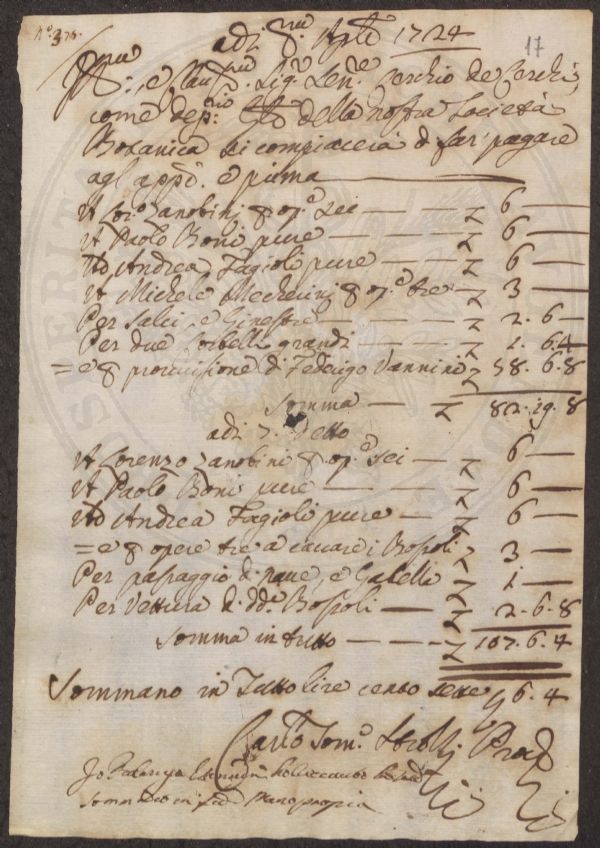 N.° 376.
17
adì p.mo Aple 1724
Ill.mo, e Clar.mo Sig.r Sen.re Cerchio de Cerchi,
come dep.rio della nostra Società
Botanica si compiacerà di far pagare
agl'app.i e prima
A Lor.o Zanobini p op.e sei — £ 6 —
A Paolo Boni pure — £ 6 —
Ad Andrea Fagioli pure — £ 6 —
A Michele Mecherini p op.e tre — £ 3 —
Per Salci, e Ginestre — £ 2. 6 —
Per due Corbelli grandi — £ 1. 6. 4
= e p provvisione di Federigo Vannini £ 58. 6. 8
Somma — £ 82. 19. 8
adì 7. detto
A Lorenzo Zanobini p op.e sei — £ 6 —
A Paolo Boni pure — £ 6 —
Ad Andrea Fagioli pure — £ 6 —
= e p opere tre a cavare i Bossoli £ 3 —
Per passaggio di nave, e Gabelli £ 1 —
Per Vettura di dd.i Bossoli — £ 2. 6. 8
Somma in tutto — £ 107. 6. 4
Sommano in Tutto lire cento sette 6. 4
Carlo Tom.o Strozzi
Io Federigo Vannini
mano propria